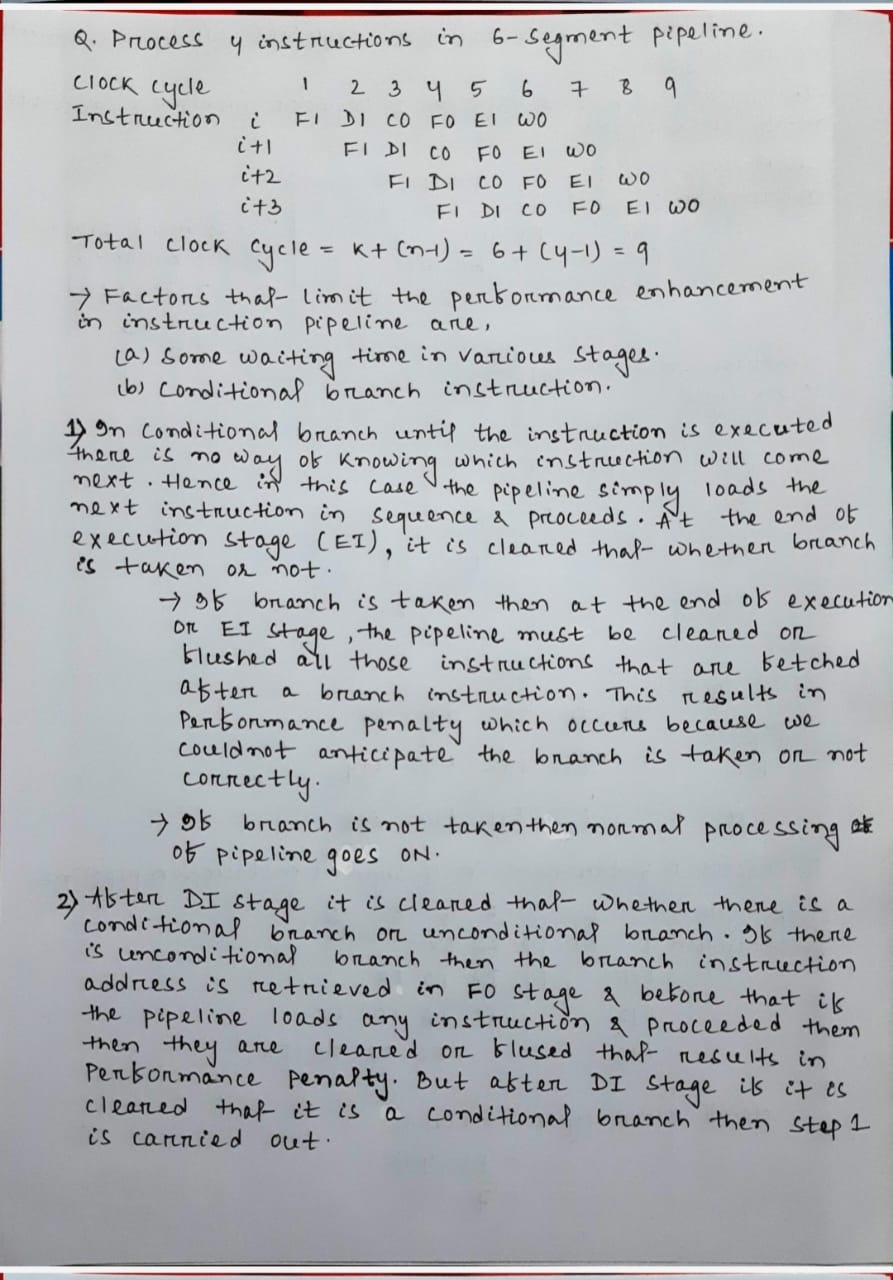 Q. Process 4 instructions in 6-segment pipeline.
Clock cycle 1 2 3 4 5 6 7 8 9
Instruction i FI DI CO FO EI WO
i+1 FI DI CO FO EI WO
i+2 FI DI CO FO EI WO
i+3 FI DI CO FO EI WO
Total clock cycle = K+(n-1) = 6+(4-1) = 9
→ Factors that limit the performance enhancement
in instruction pipeline are,
(a) Some waiting time in various stages.
(b) Conditional branch instruction.
1) In Conditional branch until the instruction is executed
there is no way of knowing which instruction will come
next. Hence in this case the pipeline simply loads the
next instruction in sequence & proceeds. At the end of
execution stage (EI), it is cleared that whether branch
is taken or not.
→ If branch is taken then at the end of execution
or EI stage, the pipeline must be cleared or
flushed all those instructions that are fetched
after a branch instruction. This results in
Performance penalty which occurs because we
couldnot anticipate the branch is taken or not
correctly.
→ If branch is not taken then normal processing
of pipeline goes ON.
2) After DI stage it is cleared that whether there is a
conditional branch or unconditional branch. If there
is unconditional branch then the branch instruction
address is retrieved in FO stage & before that if
the pipeline loads any instruction & proceeded them
then they are cleared or flused that results in
Performance penalty. But after DI stage if it is
cleared that it is a conditional branch then step 1
is carried out.